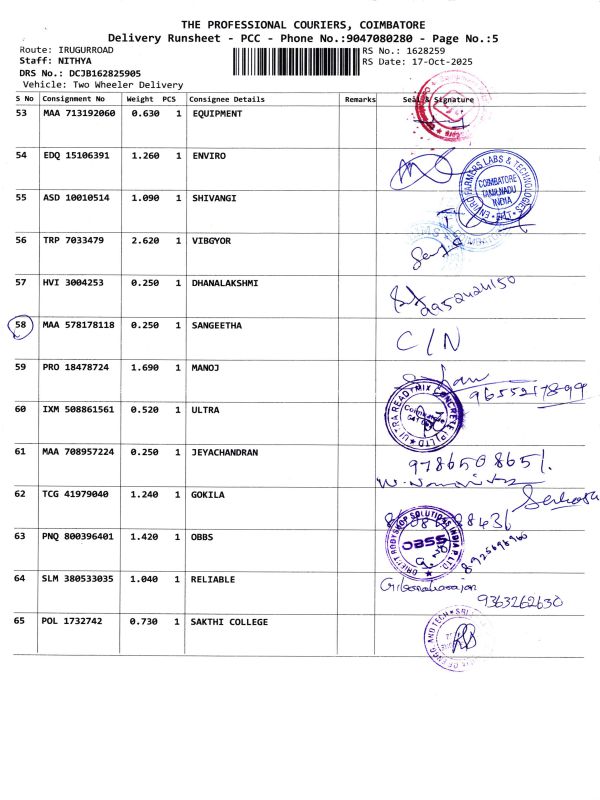 THE PROFESSIONAL COURIERS, COIMBATORE
Delivery Runsheet - PCC - Phone No.:9047080280 - Page No.:5
Route: IRUGURROAD
RS No.: 1628259
Staff: NITHYA
RS Date: 17-Oct-2025
DRS No.: DCJB162825905
Vehicle: Two Wheeler Delivery
S No Consignment No Weight PCS Consignee Details Remarks Seal & Signature
53 MAA 713192060 0.630 1 EQUIPMENT
54 EDQ 15106391 1.260 1 ENVIRO
ENVIRO FARMERS LABS & TECHNOLOGIES
COIMBATORE
TAMILNADU
INDIA
55 ASD 10010514 1.090 1 SHIVANGI
56 TRP 7033479 2.620 1 VIBGYOR
57 HVI 3004253 0.250 1 DHANALAKSHMI
9952424150
58 MAA 578178118 0.250 1 SANGEETHA C/N
59 PRO 18478724 1.690 1 MANOJ
9655217899
60 IXM 508861561 0.520 1 ULTRA
ULTRA READYMIX CONCRETE (P) LTD
61 MAA 708957224 0.250 1 JEYACHANDRAN
9786508651
62 TCG 41979040 1.240 1 GOKILA
63 PNQ 800396401 1.420 1 OBBS
BODYSHOP SOLUTIONS INDIA P. LTD.
OBSS
64 SLM 380533035 1.040 1 RELIABLE
9363262630
65 POL 1732742 0.730 1 SAKTHI COLLEGE